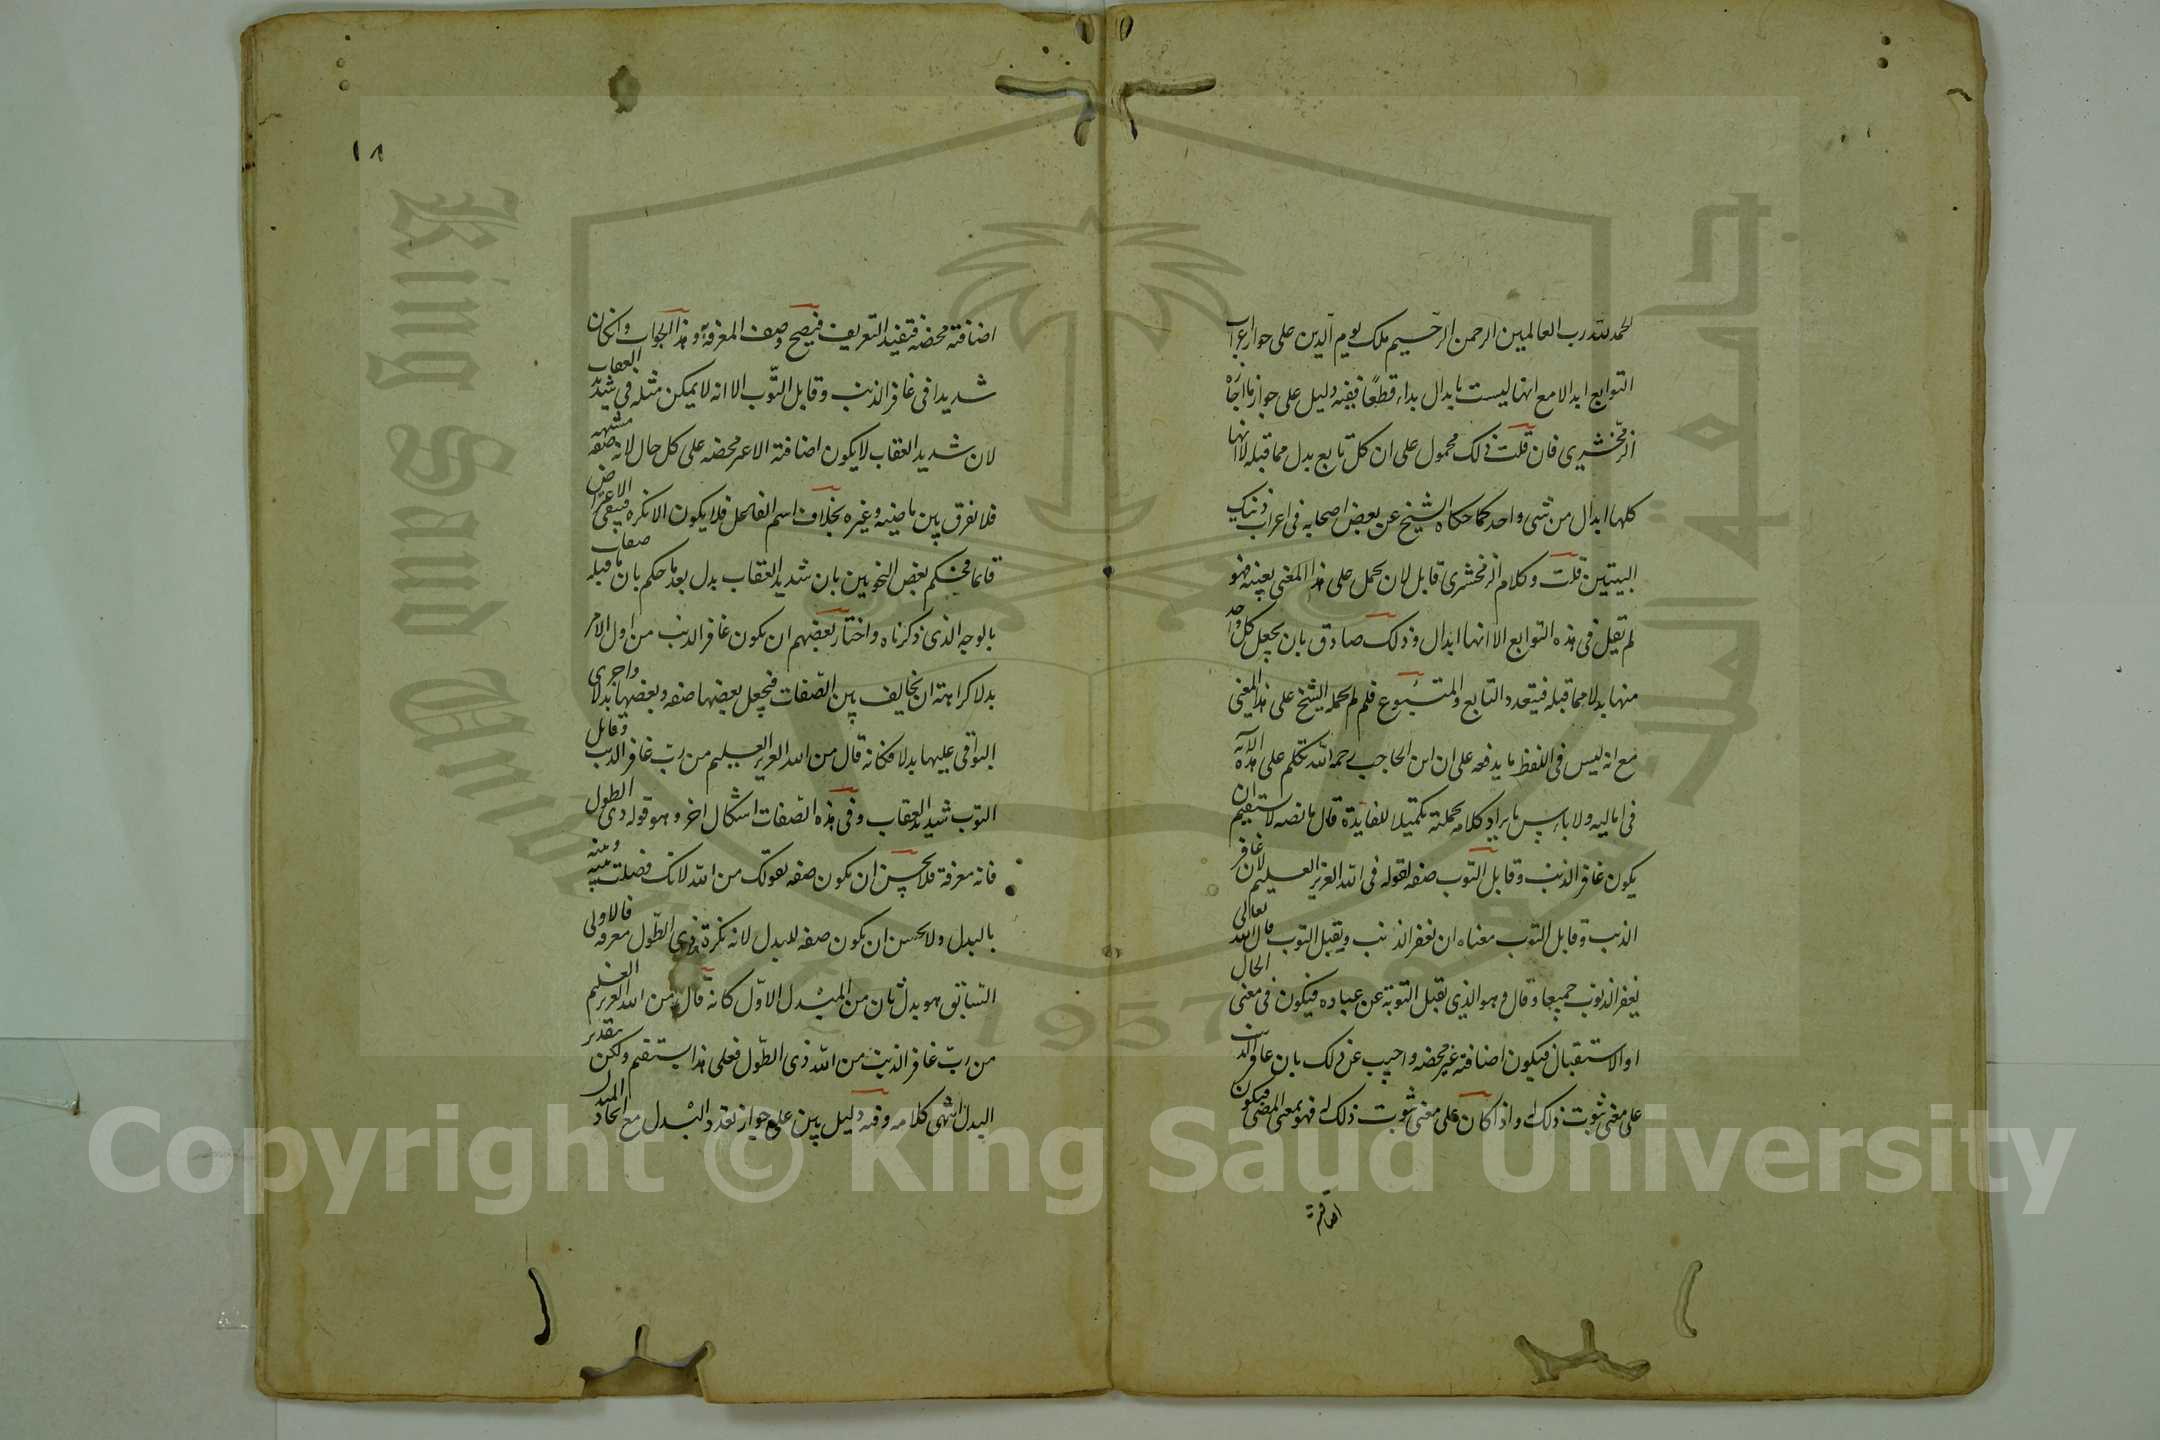 الحمد لله رب العالمين الرحمن الرحيم ملك يوم الدين على جواز اعراب
التوابع ابدالا مع انها ليست بابدال بداء قطعًا ففيه دليل على جواز ما اجازه
الزمخشري فان قلت ذلك محمول على ان كل تابع بدل مما قبله لا انها
كلها ابدال من شى واحد كما حكاه الشيخ عن بعض اصحابه فى اعراب ذينك
البيتين قلت وكلام الزمخشرى قابل لان يحمل على هذا المعنى بعينه فهو
لم يقل فى هذه التوابع الا انها ابدال وذلك صادق بان يجعل كل واحد
منها بدلا مما قبله فيتعدد التابع والمتبوع فلم لم يحمله الشيخ على هذا المعنى
مع انه ليس فى اللفظ ما يدفعه على ان ابن الحاجب رحمه الله تكلم على هذه الآية
فى اماليه ولا باس بايراد كلامه بجملته تكميلا للفايدة قال ما نصه لا يستقيم ان
يكون غافر الذنب وقابل التوب صفه لقوله فى الله العزيز العليم لان غافر
الذنب وقابل التوب معناه ان يغفر الذنب ويقبل التوب قال الله تعالى
يغفر الذنوب جميعا وقال وهو الذى يقبل التوبة عن عباده فيكون فى معنى الحال
او الاستقبال فيكون اضافته غير محضه واجيب عن ذلك بان غافر الذنب
على معنى ثبوت ذلك له واذا كان على معنى ثبوت ذلك له فهو بمعنى المضى فيكون
اضافته
١٨
اضافته محضه فتفيد التعريف فيصح وصف المعرفة وهذا الجواب وان كان
شديدا فى غافر الذنب وقابل التوب الا انه لا يمكن مثله فى شديد العقاب
لان شديد العقاب لا يكون اضافته الا غير محضه على كل حال لانه صفه مشبهه
فلا نفرق بين ماضيه وغيره بخلاف اسم الفاعل فلا يكون الا نكره فيبقى الاعتراض
قائما فحكم بعض النحويين بان شديد العقاب بدل بعد ما حكم بان ما قبله صفات
بالوجه الذى ذكرناه واختار بعضهم ان يكون غافر الذنب من اول الامر
بدلا كراهة ان يخالف بين الصفات فيجعل بعضها صفه وبعضها بدلا واجرى
البواقى عليها بدلا فكانه قال من الله العزيز العليم من رب غافر الذنب وقابل
التوب شديد العقاب وفى هذه الصفات اشكال اخر وهو قوله ذى الطول
فانه معرفة فلا يحسن ان يكون صفه لقولك من الله لانك فصلت بينه وبينه
بالبدل ولا يحسن ان يكون صفه للبدل لانه نكرة وذى الطول معرفه فالاولى
السابق هو بدل ثان من المبدل الاول كانه قال من الله العزيز العليم
من رب غافر الذنب من الله ذى الطول فعلى هذا يستقيم ولكن بتقدير
البدل انتهى كلامه وفيه دليل بين على جواز تعدد البدل مع اتحاد المبدل
King Saud University
جامعة الملك سعود
1957
Copyright © King Saud University